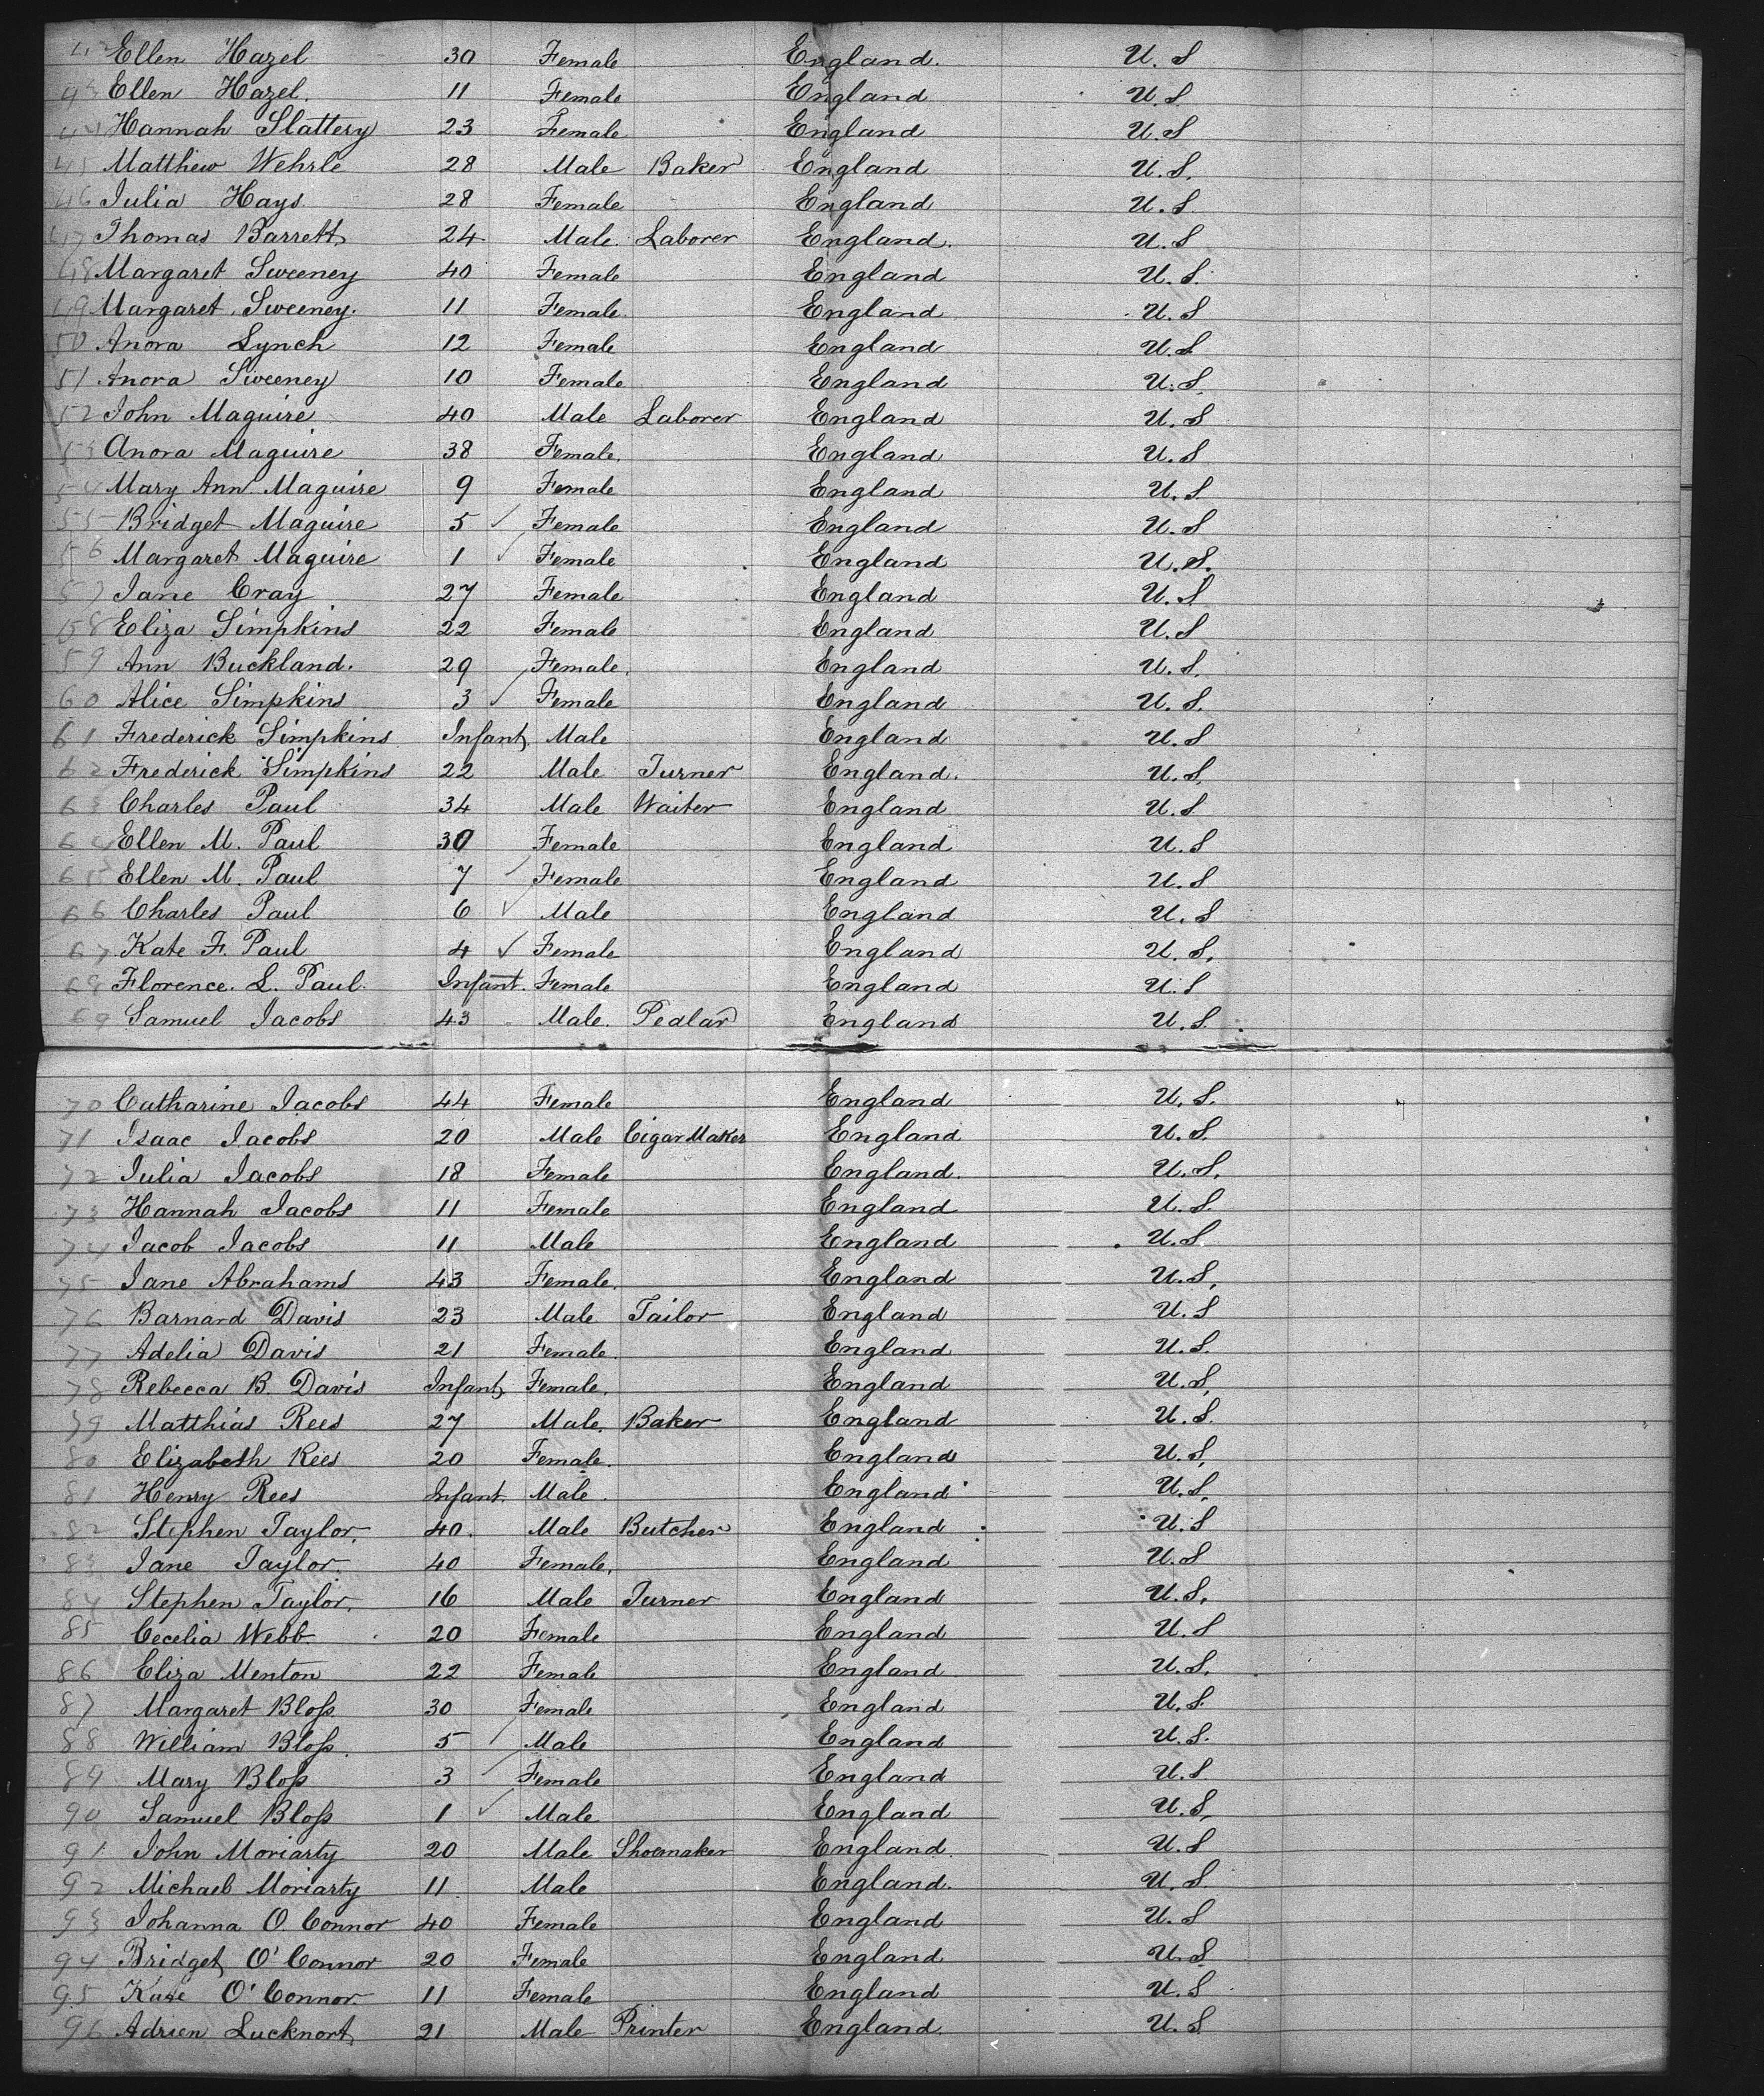 42 Ellen Hazel 30 Female England. U. S
43 Ellen Hazel. 11 Female England U. S.
44 Hannah Slattery 23 Female England U. S
45 Matthew Wehrle 28 Male Baker England U. S.
46 Julia Hays 28 Female England U. S.
47 Thomas Barrett 24 Male. Laborer England. U. S
48 Margaret Sweeney 40 Female England U. S.
49 Margaret Sweeney. 11 Female England U. S
50 Anora Lynch 12 Female England U. S.
51 Anora Sweeney 10 Female England U. S.
52 John Maguire 40 Male Laborer England U. S
53 Anora Maguire 38 Female. England U. S
54 Mary Ann Maguire 9 Female England U. S.
55 Bridget Maguire 5 ✓ Female England U. S
56 Margaret Maguire 1 ✓ Female England U. S.
57 Jane Cray 27 Female England U. S.
58 Eliza Simpkins 22 Female England U. S
59 Ann Buckland. 29 Female. England U. S.
60 Alice Simpkins 3 ✓ Female England U. S.
61 Frederick Simpkins Infant. Male England U. S
62 Frederick Simpkins 22 Male Turner England. U. S.
63 Charles Paul 34 Male Waiter England U. S.
64 Ellen M. Paul 30 Female England U. S
65 Ellen M. Paul 7 ✓ Female England U. S
66 Charles Paul 6 ✓ Male England U. S
67 Kate F. Paul 4 ✓ Female England U. S.
68 Florence. L. Paul. Infant. Female England U. S
69 Samuel Jacobs 43 Male. Pedlar England U. S.
70 Catharine Jacobs 44 Female England U. S.
71 Isaac Jacobs 20 Male Cigar Maker England U. S.
72 Julia Jacobs 18 Female England. U. S.
73 Hannah Jacobs 11 Female England U. S.
74 Jacob Jacobs 11 Male England U. S.
75 Jane Abrahams 43 Female. England U. S.
76 Barnard Davis 23 Male Tailor England U. S
77 Adelia Davis 21 Female. England U. S.
78 Rebecca B. Davis Infant Female. England U. S.
79 Matthias Rees 27 Male. Baker England U. S.
80 Elizabeth Rees 20 Female. England U. S.
81 Henry Rees Infant. Male. England U. S.
82 Stephen Taylor. 40. Male Butcher England U. S
83 Jane Taylor. 40 Female. England U. S
84 Stephen Taylor. 16 Male Turner England U. S.
85 Cecelia Webb. 20 Female England U. S
86 Eliza Menton 22 Female England U. S.
87 Margaret Bloſs. 30 Female England U. S.
88 William Bloſs. 5 ✓ Male England U. S.
89 Mary Bloſs 3 ✓ Female England U. S
90 Samuel Bloſs 1 ✓ Male England U. S.
91 John Moriarty 20 Male Shoemaker England. U. S
92 Michael Moriarty 11. Male England. U. S.
93 Johanna O. Connor 40 Female England U. S
94 Bridget O' Connor 20 Female England U. S.
95 Kate O' Connor. 11 Female England U. S
96 Adrien Lucknort 21 Male Printer England. U. S